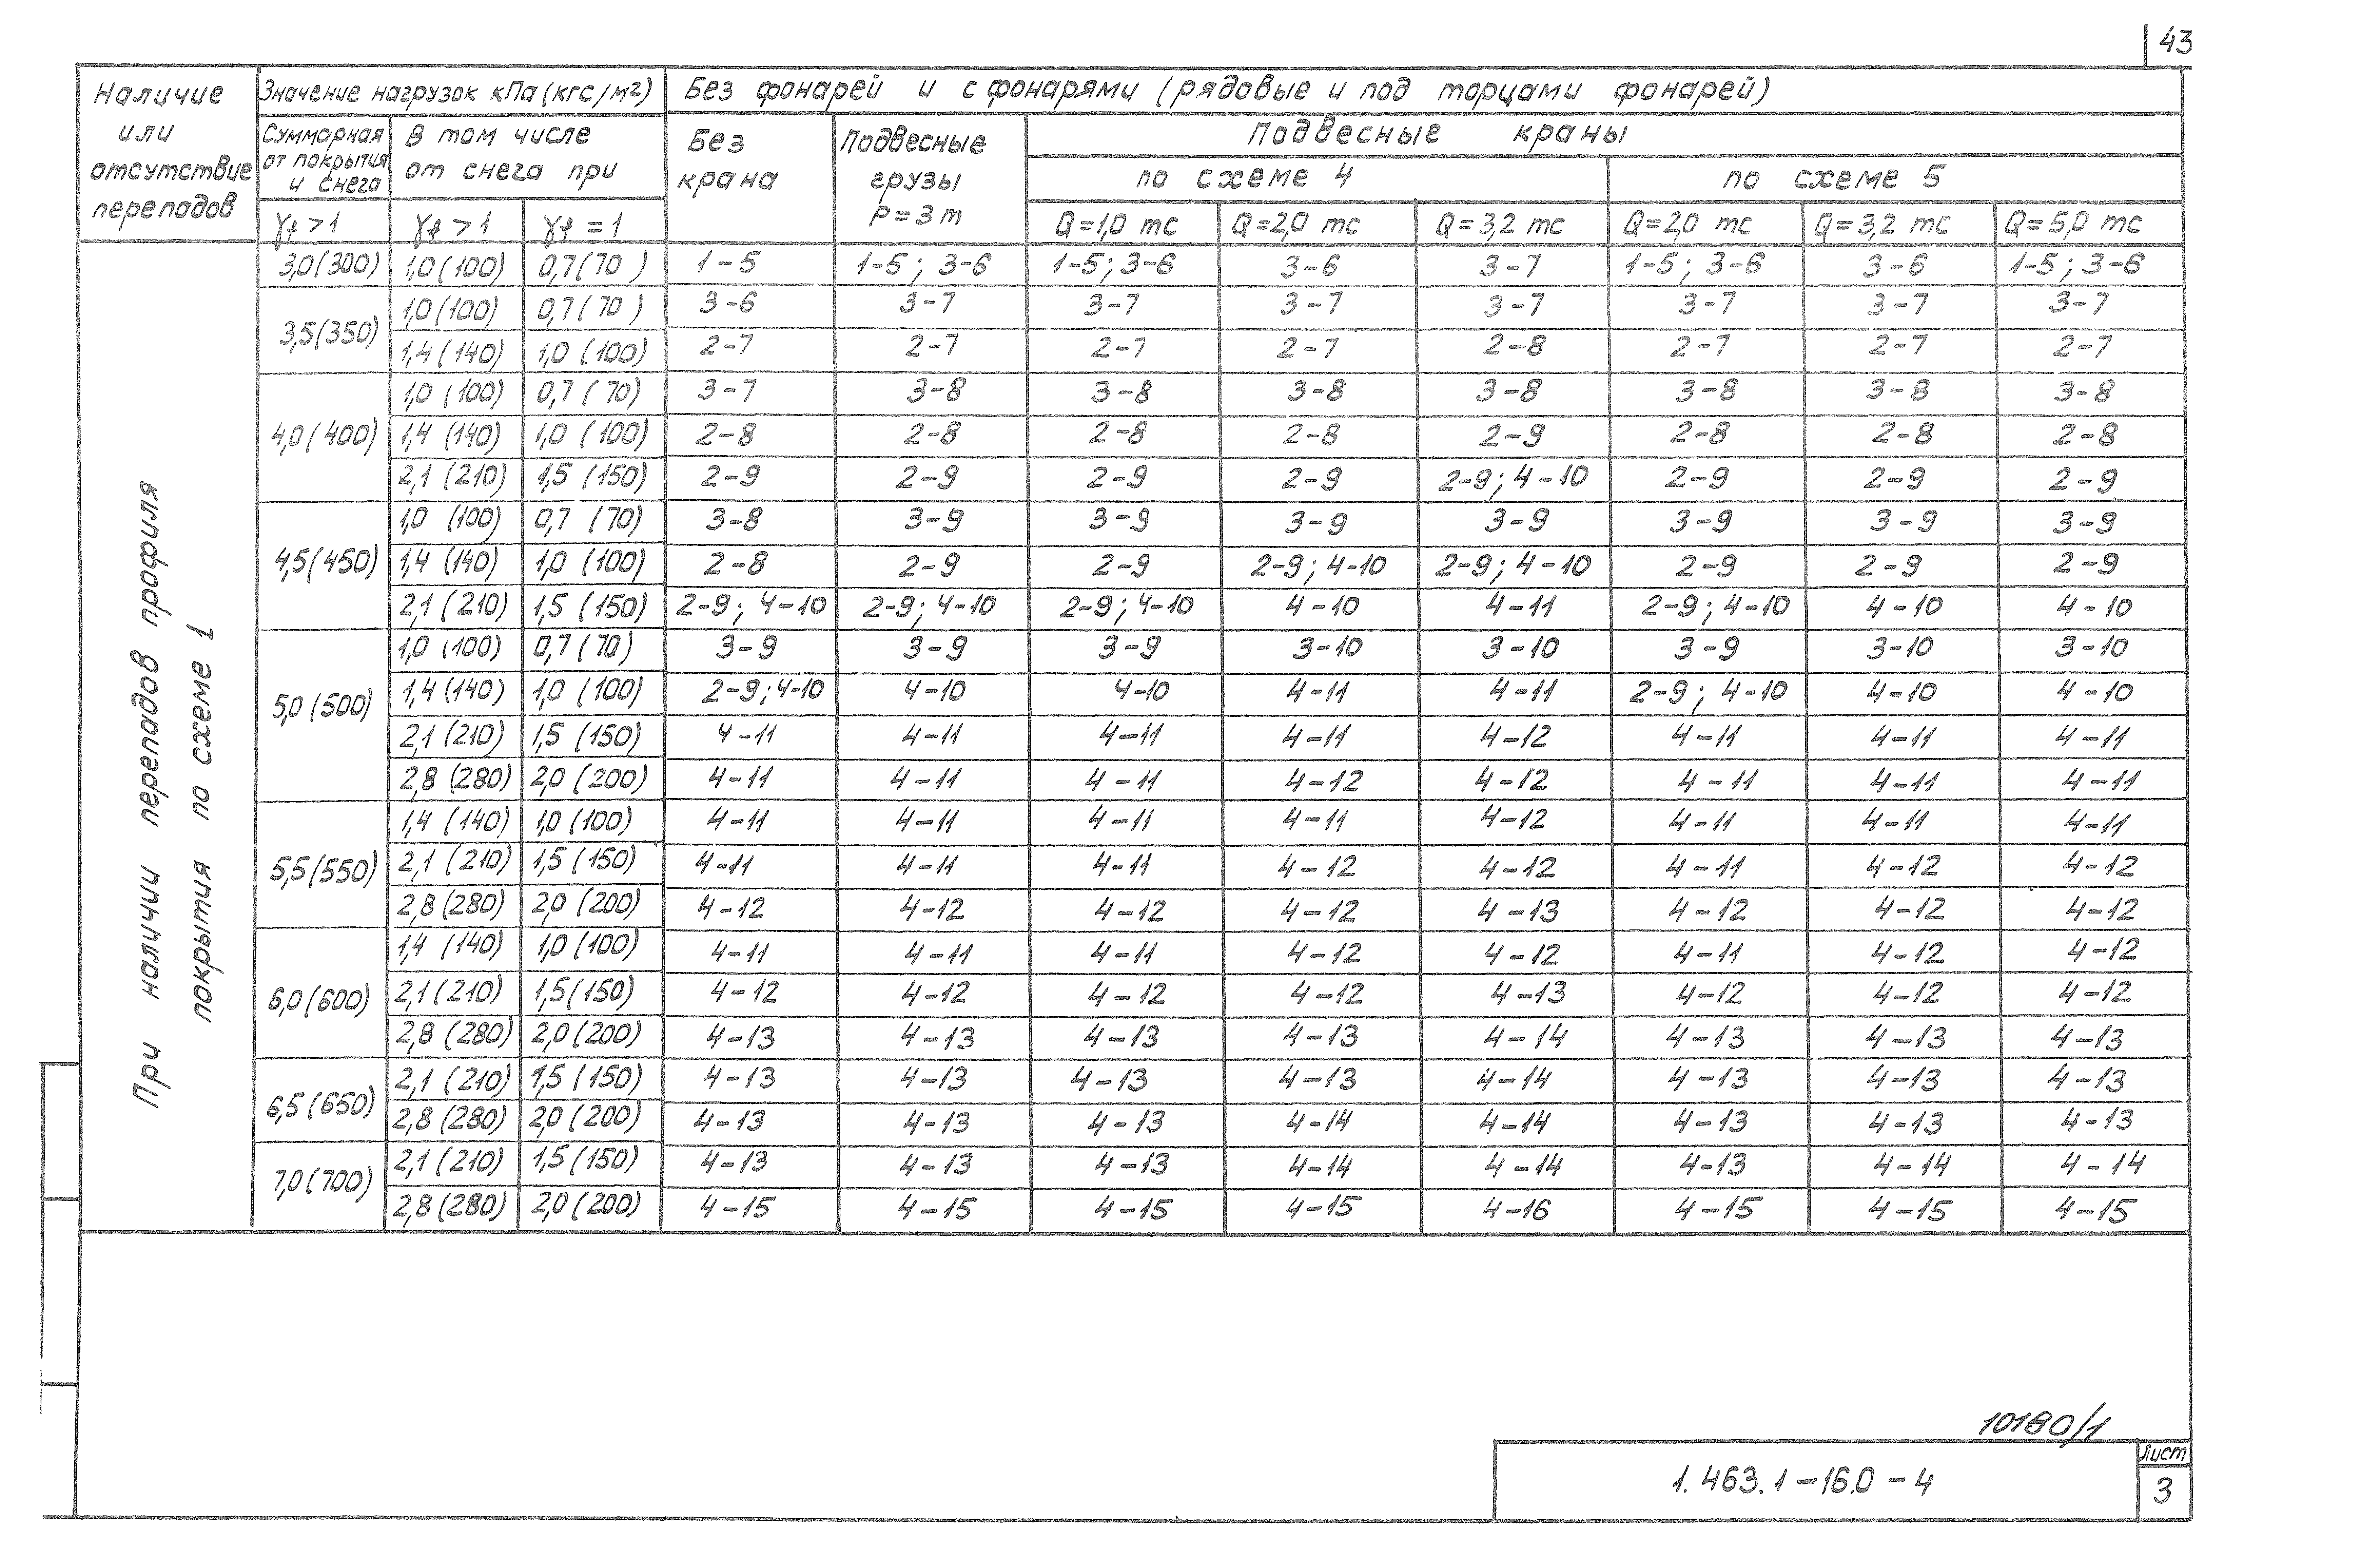 43
Наличие или отсутствие перепадов
Значение нагрузок кПа (кгс/м²)
Без фонарей и с фонарями (рядовые и под торцами фонарей)
Суммарная от покрытия и снега
В том числе от снега при
Без крана
Подвесные грузы P = 3 т
Подвесные краны
по схеме 4
по схеме 5
γf > 1
γf > 1
γf = 1
Q = 1,0 тс
Q = 2,0 тс
Q = 3,2 тс
Q = 2,0 тс
Q = 3,2 тс
Q = 5,0 тс
При наличии перепадов профиля
покрытия по схеме 1
3,0 (300) 1,0 (100) 0,7 (70) 1-5 1-5; 3-6 1-5; 3-6 3-6 3-7 1-5; 3-6 3-6 1-5; 3-6
3,5 (350) 1,0 (100) 0,7 (70) 3-6 3-7 3-7 3-7 3-7 3-7 3-7 3-7
1,4 (140) 1,0 (100) 2-7 2-7 2-7 2-7 2-8 2-7 2-7 2-7
4,0 (400) 1,0 (100) 0,7 (70) 3-7 3-8 3-8 3-8 3-8 3-8 3-8 3-8
1,4 (140) 1,0 (100) 2-8 2-8 2-8 2-8 2-9 2-8 2-8 2-8
2,1 (210) 1,5 (150) 2-9 2-9 2-9 2-9 2-9; 4-10 2-9 2-9 2-9
4,5 (450) 1,0 (100) 0,7 (70) 3-8 3-9 3-9 3-9 3-9 3-9 3-9 3-9
1,4 (140) 1,0 (100) 2-8 2-9 2-9 2-9; 4-10 2-9; 4-10 2-9 2-9 2-9
2,1 (210) 1,5 (150) 2-9; 4-10 2-9; 4-10 2-9; 4-10 4-10 4-11 2-9; 4-10 4-10 4-10
5,0 (500) 1,0 (100) 0,7 (70) 3-9 3-9 3-9 3-10 3-10 3-9 3-10 3-10
1,4 (140) 1,0 (100) 2-9; 4-10 4-10 4-10 4-11 4-11 2-9; 4-10 4-10 4-10
2,1 (210) 1,5 (150) 4-11 4-11 4-11 4-11 4-12 4-11 4-11 4-11
2,8 (280) 2,0 (200) 4-11 4-11 4-11 4-12 4-12 4-11 4-11 4-11
5,5 (550) 1,4 (140) 1,0 (100) 4-11 4-11 4-11 4-11 4-12 4-11 4-11 4-11
2,1 (210) 1,5 (150) 4-11 4-11 4-11 4-12 4-12 4-11 4-12 4-12
2,8 (280) 2,0 (200) 4-12 4-12 4-12 4-12 4-13 4-12 4-12 4-12
6,0 (600) 1,4 (140) 1,0 (100) 4-11 4-11 4-11 4-12 4-12 4-11 4-12 4-12
2,1 (210) 1,5 (150) 4-12 4-12 4-12 4-12 4-13 4-12 4-12 4-12
2,8 (280) 2,0 (200) 4-13 4-13 4-13 4-13 4-14 4-13 4-13 4-13
6,5 (650) 2,1 (210) 1,5 (150) 4-13 4-13 4-13 4-13 4-14 4-13 4-13 4-13
2,8 (280) 2,0 (200) 4-13 4-13 4-13 4-14 4-14 4-13 4-13 4-13
7,0 (700) 2,1 (210) 1,5 (150) 4-13 4-13 4-13 4-14 4-14 4-13 4-14 4-14
2,8 (280) 2,0 (200) 4-15 4-15 4-15 4-15 4-16 4-15 4-15 4-15
10180/1
1.463.1-16.0-4
Лист
3